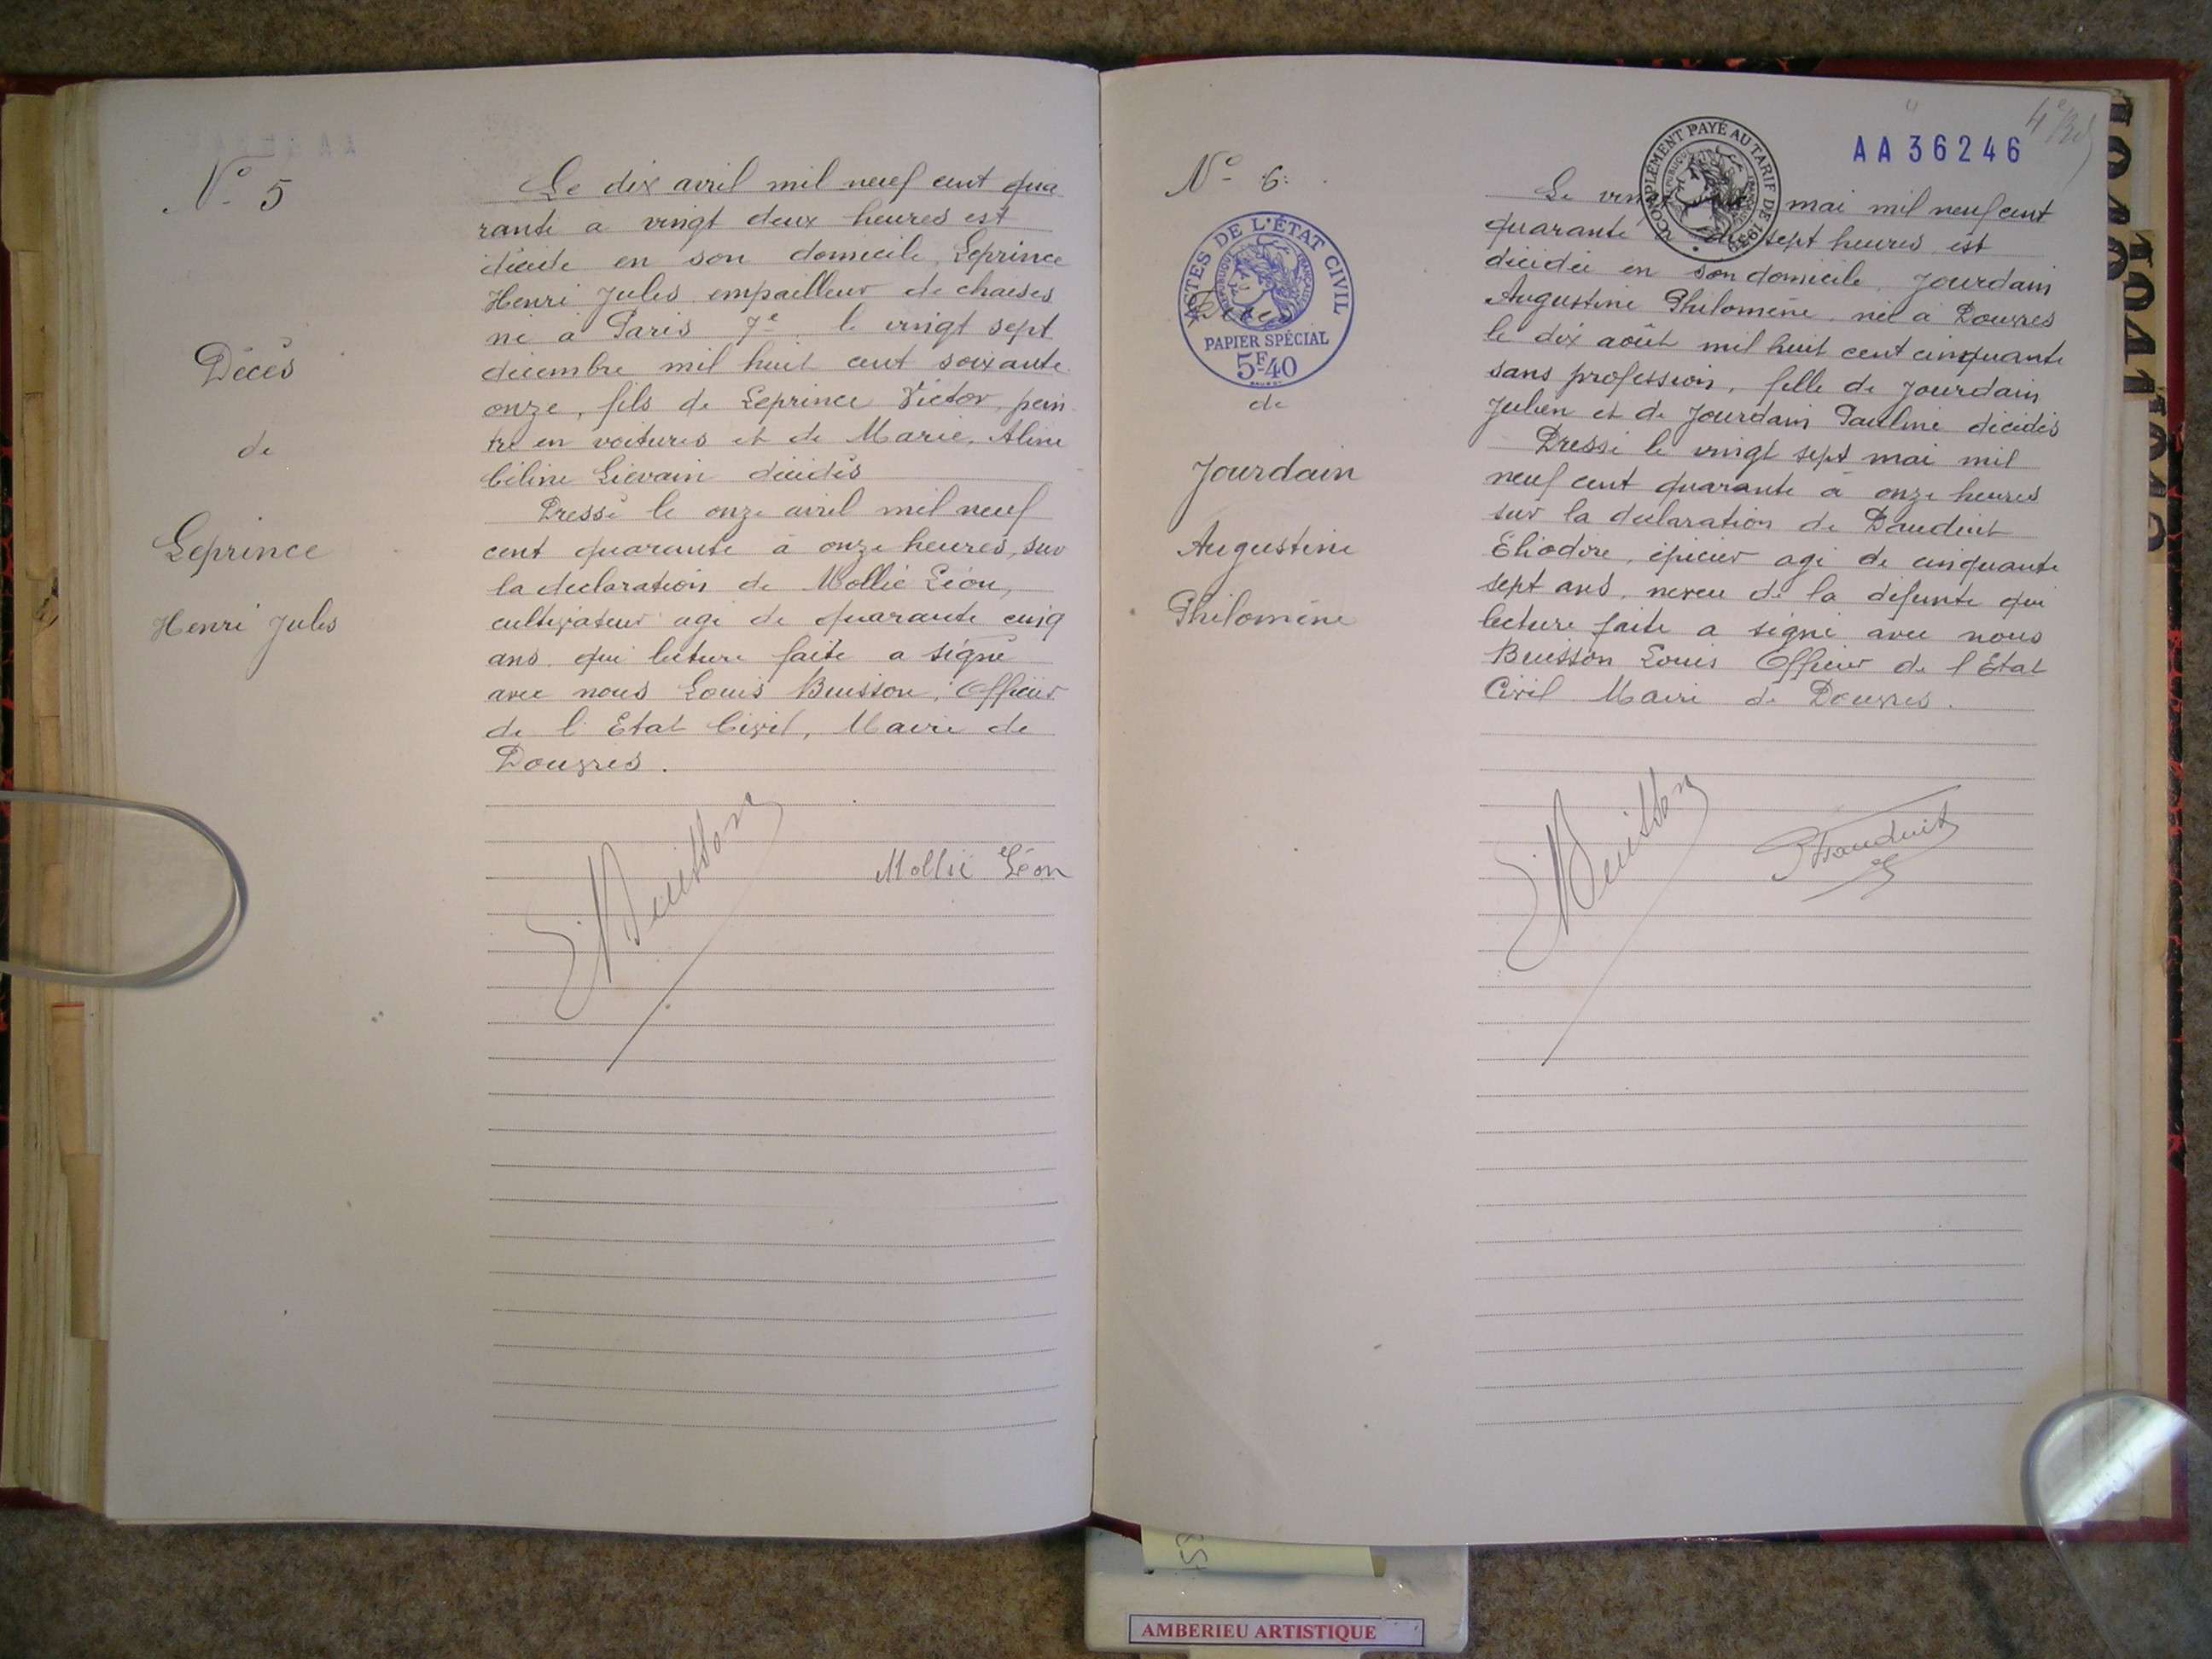 N° 5
Décès
de
Leprince
Henri Jules
Le dix avril mil neuf cent qua
rante à vingt deux heures est
décédé en son domicile, Leprince
Henri Jules empailleur de chaises
né à Paris 7e le vingt sept
décembre mil huit cent soixante
onze, fils de Leprince Victor, pein
tre en voitures et de Marie, Aline
Céline Liévain décédés
Dressé le onze avril mil neuf
cent quarante à onze heures, sur
la déclaration de Mollié Léon,
cultivateur agé de quarante cinq
ans qui lecture faite a signé
avec nous Louis Buisson, Officier
de l'Etat Civil, Maire de
Douvres.
Buisson
Mollié Léon
N° 6
ACTES DE L'ÉTAT CIVIL
RÉPUBLIQUE FRANÇAISE
Décès
PAPIER SPÉCIAL
5F40
de
Jourdain
Augustine
Philomène
COMPLÉMENT PAYÉ AU TARIF DE 1939
AA 36246
Le mai mil neuf cent
quarante à sept heures est
décédée en son domicile, Jourdain
Augustine Philomène, née à Douvres
le dix août mil huit cent cinquante
sans profession, fille de Jourdain
Julien et de Jourdain Pauline décédés
Dressé le vingt sept mai mil
neuf cent quarante à onze heures
sur la déclaration de Dauduit
Eliodore, épicier agé de cinquante
sept ans, neveu de la défunte qui
lecture faite a signé avec nous
Buisson Louis Officier de l'Etat
Civil Maire de Douvres.
Buisson
AMBERIEU ARTISTIQUE